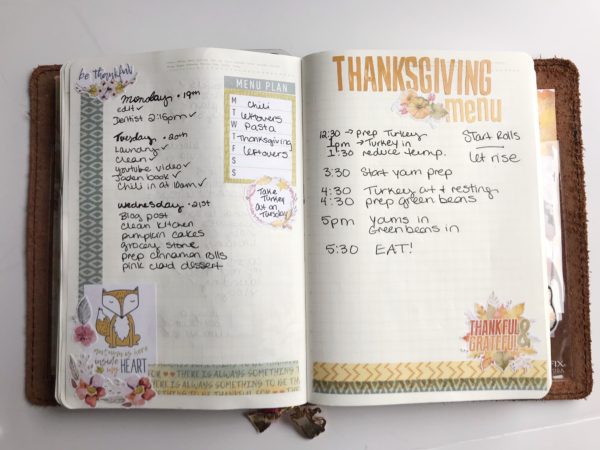 be thankful
Monday • 19th
edit ✓
Dentist 2:15pm ✓
Tuesday • 20th
Laundry ✓
clean ✓
youtube video ✓
Jaden book ✓
Chili in at 10am ✓
Wednesday • 21st
Blog post
clean kitchen
pumpkin cakes
grocery store
prep cinnamon rolls
pink cloud dessert
MENU PLAN
M Chili
T Leftovers
W Pasta
T Thanksgiving
F Leftovers
S
S
Take
Turkey
out on
Tuesday
autumn is here
inside
my
HEART
THERE IS ALWAYS SOMETHING TO BE
THERE IS ALWAYS SOMETHING TO BE THANKFUL FOR
THANKSGIVING
menu
12:30 → prep Turkey
1pm → Turkey in
1:30 reduce temp.
Start Rolls
let rise
3:30 Start yam prep
4:30 Turkey out & resting
4:30 prep green beans
5pm Yams in
Green beans in
5:30 EAT!
THANKFUL &
GRATEFUL